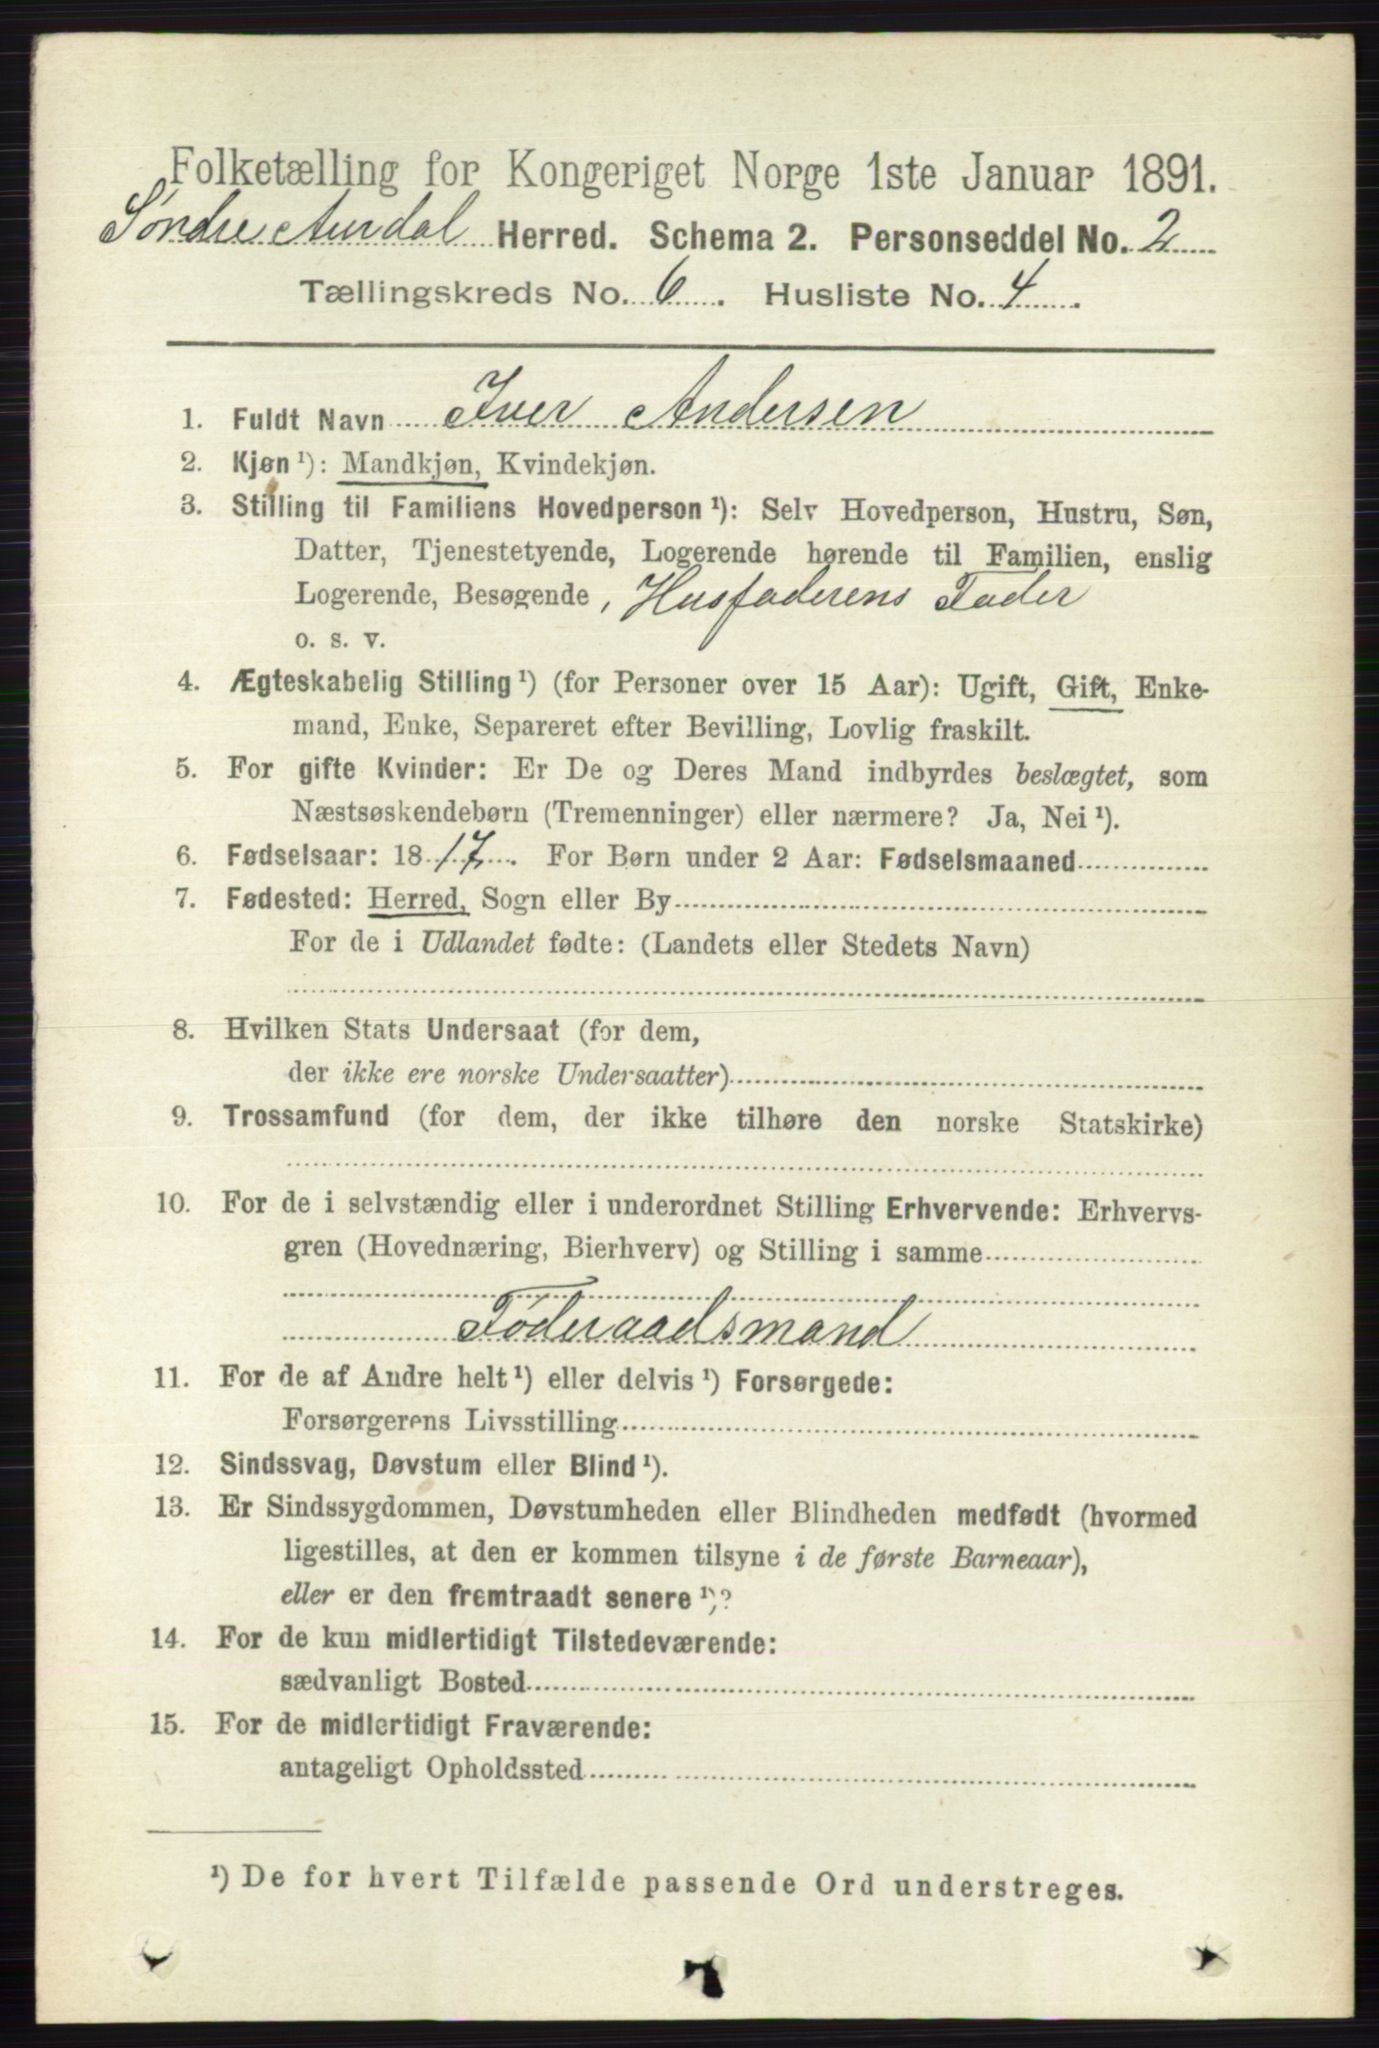 Folketælling for Kongeriget Norge 1ste Januar 1891.
Søndre Aurdal Herred. Schema 2. Personseddel No. 2
Tællingskreds No. 6. Husliste No. 4.
1. Fuldt Navn Iver Andersen
2. Kjøn ¹): Mandkjøn, Kvindekjøn.
3. Stilling til Familiens Hovedperson ¹): Selv Hovedperson, Hustru, Søn,
Datter, Tjenestetyende, Logerende hørende til Familien, enslig
Logerende, Besøgende, Husfaderens Fader
o. s. v.
4. Ægteskabelig Stilling ¹) (for Personer over 15 Aar): Ugift, Gift, Enke-
mand, Enke, Separeret efter Bevilling, Lovlig fraskilt.
5. For gifte Kvinder: Er De og Deres Mand indbyrdes beslægtet, som
Næstsøskendebørn (Tremenninger) eller nærmere? Ja, Nei ¹).
6. Fødselsaar: 1817. For Børn under 2 Aar: Fødselsmaaned
7. Fødested: Herred, Sogn eller By
For de i Udlandet fødte: (Landets eller Stedets Navn)
8. Hvilken Stats Undersaat (for dem,
der ikke ere norske Undersaatter)
9. Trossamfund (for dem, der ikke tilhøre den norske Statskirke)
10. For de i selvstændig eller i underordnet Stilling Erhvervende: Erhvervs-
gren (Hovednæring, Bierhverv) og Stilling i samme
Føderaadsmand
11. For de af Andre helt ¹) eller delvis ¹) Forsørgede:
Forsørgerens Livsstilling
12. Sindssvag, Døvstum eller Blind ¹).
13. Er Sindssygdommen, Døvstumheden eller Blindheden medfødt (hvormed
ligestilles, at den er kommen tilsyne i de første Barneaar),
eller er den fremtraadt senere ¹)?
14. For de kun midlertidigt Tilstedeværende:
sædvanligt Bosted
15. For de midlertidigt Fraværende:
antageligt Opholdssted
¹) De for hvert Tilfælde passende Ord understreges.